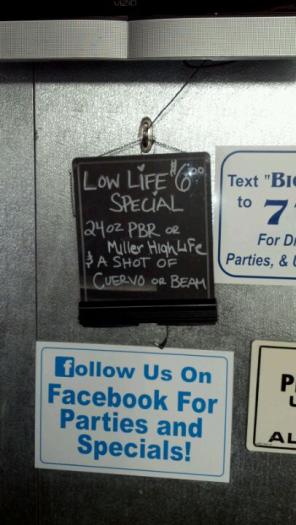 VIZIO
LOW LIFE $6.00
SPECIAL
24OZ PBR OR
Miller High Life
& A SHOT OF
CUERVO OR BEAM
Text "BI
to 7
For D
Parties, &
follow Us On
Facebook For
Parties and
Specials!
P
U
AL